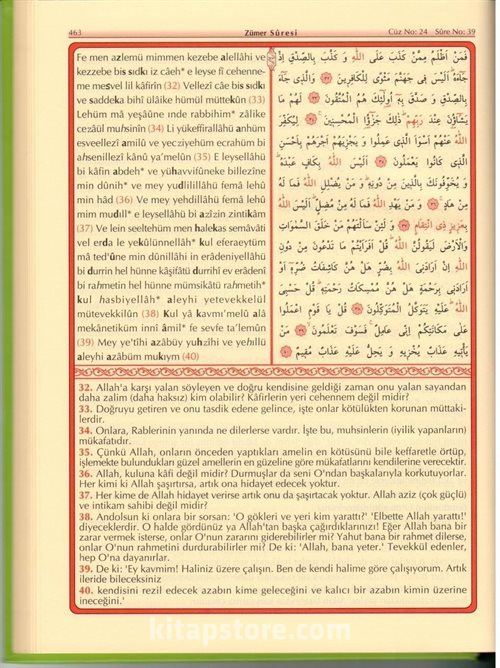 463 Zümer Sûresi Cüz No: 24 Sûre No: 39
Fe men azlemü mimmen kezebe alellâhi ve
kezzebe bis sıdkı iz câeh* e leyse fî cehenne-
me mesvel lil kâfirîn (32) Vellezî câe bis sıdkı
ve saddeka bihî ülâike hümül müttekûn (33)
Lehüm mâ yeşâûne ınde rabbihim* zâlike
cezâül muhsinîn (34) Li yükeffirallâhü anhüm
esveellezî amilû ve yecziyehüm ecrahüm bi
ahsenillezî kânû ya'melûn (35) E leysellâhü
bi kâfin abdeh* ve yühavvifûneke billezîne
min dûnih* ve mey yudlilillâhü femâ lehû
min hâd (36) Ve mey yehdillâhü femâ lehû
mim mudıll* e leysellâhü bi azîzin zintikâm
(37) Ve lein seeltehüm men halekas semâvâti
vel erda le yekûlünnellâh* kul eferaeytüm
mâ ted'ûne min dûnillâhi in erâdeniyellâhü
bi durrin hel hünne kâşifâtü durrihî ev erâdenî
bi rahmetin hel hünne mümsikâtü rahmetih*
kul hasbiyellâh* aleyhi yetevekkelül
mütevekkilûn (38) Kul yâ kavmı'melû alâ
mekânetiküm innî âmil* fe sevfe ta'lemûn
(39) Mey ye'tîhi azâbüy yuhzîhi ve yehıllü
aleyhi azâbüm mukıym (40)
فَمَنْ اَظْلَمُ مِمَّنْ كَذَبَ عَلَى اللّٰهِ وَ كَذَّبَ بِالصِّدْقِ اِذْ
جَٓاءَهُ اَلَيْسَ فٖى جَهَنَّمَ مَثْوًى لِلْكَافِرٖينَ ﴿٣٢﴾ وَالَّذٖى جَٓاءَ
بِالصِّدْقِ وَ صَدَّقَ بِهٖ اُولٰٓئِكَ هُمُ الْمُتَّقُونَ ﴿٣٣﴾ لَهُمْ مَا
يَشَٓاؤُنَ عِنْدَ رَبِّهِمْ ذٰلِكَ جَزٰٓؤُا الْمُحْسِنٖينَ ﴿٣٤﴾ لِيُكَفِّرَ
اللّٰهُ عَنْهُمْ اَسْوَاَ الَّذٖى عَمِلُوا وَ يَجْزِيَهُمْ اَجْرَهُمْ بِاَحْسَنِ
الَّذٖى كَانُوا يَعْمَلُونَ ﴿٣٥﴾ اَلَيْسَ اللّٰهُ بِكَافٍ عَبْدَهُ
وَ يُخَوِّفُونَكَ بِالَّذٖينَ مِنْ دُونِهٖ وَ مَنْ يُضْلِلِ اللّٰهُ فَمَا لَهُ
مِنْ هَادٍ ﴿٣٦﴾ وَ مَنْ يَهْدِ اللّٰهُ فَمَا لَهُ مِنْ مُضِلٍّ اَلَيْسَ اللّٰهُ
بِعَزٖيزٍ ذِى انْتِقَامٍ ﴿٣٧﴾ وَ لَئِنْ سَاَلْتَهُمْ مَنْ خَلَقَ السَّمٰوَاتِ
وَالْاَرْضَ لَيَقُولُنَّ اللّٰهُ قُلْ اَفَرَاَيْتُمْ مَا تَدْعُونَ مِنْ دُونِ
اللّٰهِ اِنْ اَرَادَنِىَ اللّٰهُ بِضُرٍّ هَلْ هُنَّ كَاشِفَاتُ ضُرِّهٖ اَوْ
اَرَادَنٖى بِرَحْمَةٍ هَلْ هُنَّ مُمْسِكَاتُ رَحْمَتِهٖ قُلْ حَسْبِىَ
اللّٰهُ عَلَيْهِ يَتَوَكَّلُ الْمُتَوَكِّلُونَ ﴿٣٨﴾ قُلْ يَا قَوْمِ اعْمَلُوا
عَلٰى مَكَانَتِكُمْ اِنّٖى عَامِلٌ فَسَوْفَ تَعْلَمُونَ ﴿٣٩﴾ مَنْ
يَاْتٖيهِ عَذَابٌ يُخْزٖيهِ وَ يَحِلُّ عَلَيْهِ عَذَابٌ مُقٖيمٌ ﴿٤٠﴾
32. Allah'a karşı yalan söyleyen ve doğru kendisine geldiği zaman onu yalan sayandan
daha zalim (daha haksız) kim olabilir? Kâfirlerin yeri cehennem değil midir?
33. Doğruyu getiren ve onu tasdik edene gelince, işte onlar kötülükten korunan müttaki-
lerdir.
34. Onlara, Rablerinin yanında ne dilerlerse vardır. İşte bu, muhsinlerin (iyilik yapanların)
mükafatıdır.
35. Çünkü Allah, onların önceden yaptıkları amelin en kötüsünü bile keffaretle örtüp,
işlemekte bulundukları güzel amellerin en güzeline göre mükafatlarını kendilerine verecektir.
36. Allah, kuluna kâfi değil midir? Durmuşlar da seni O'ndan başkalarıyla korkutuyorlar.
Her kimi ki Allah şaşırtırsa, artık ona hidayet edecek yoktur.
37. Her kime de Allah hidayet verirse artık onu da şaşırtacak yoktur. Allah aziz (çok güçlü)
ve intikam sahibi değil midir?
38. Andolsun ki onlara bir sorsan: 'O gökleri ve yeri kim yarattı?' 'Elbette Allah yarattı!'
diyeceklerdir. O halde gördünüz ya Allah'tan başka çağırdıklarınızı! Eğer Allah bana bir
zarar vermek isterse, onlar O'nun zararını giderebilirler mi? Yahut bana bir rahmet dilerse,
onlar O'nun rahmetini durdurabilirler mi? De ki: 'Allah, bana yeter.' Tevekkül edenler,
hep O'na dayanırlar.
39. De ki: 'Ey kavmim! Haliniz üzere çalışın. Ben de kendi halime göre çalışıyorum. Artık
ileride bileceksiniz
40. kendisini rezil edecek azabın kime geleceğini ve kalıcı bir azabın kimin üzerine
ineceğini.'
kitapstore.com